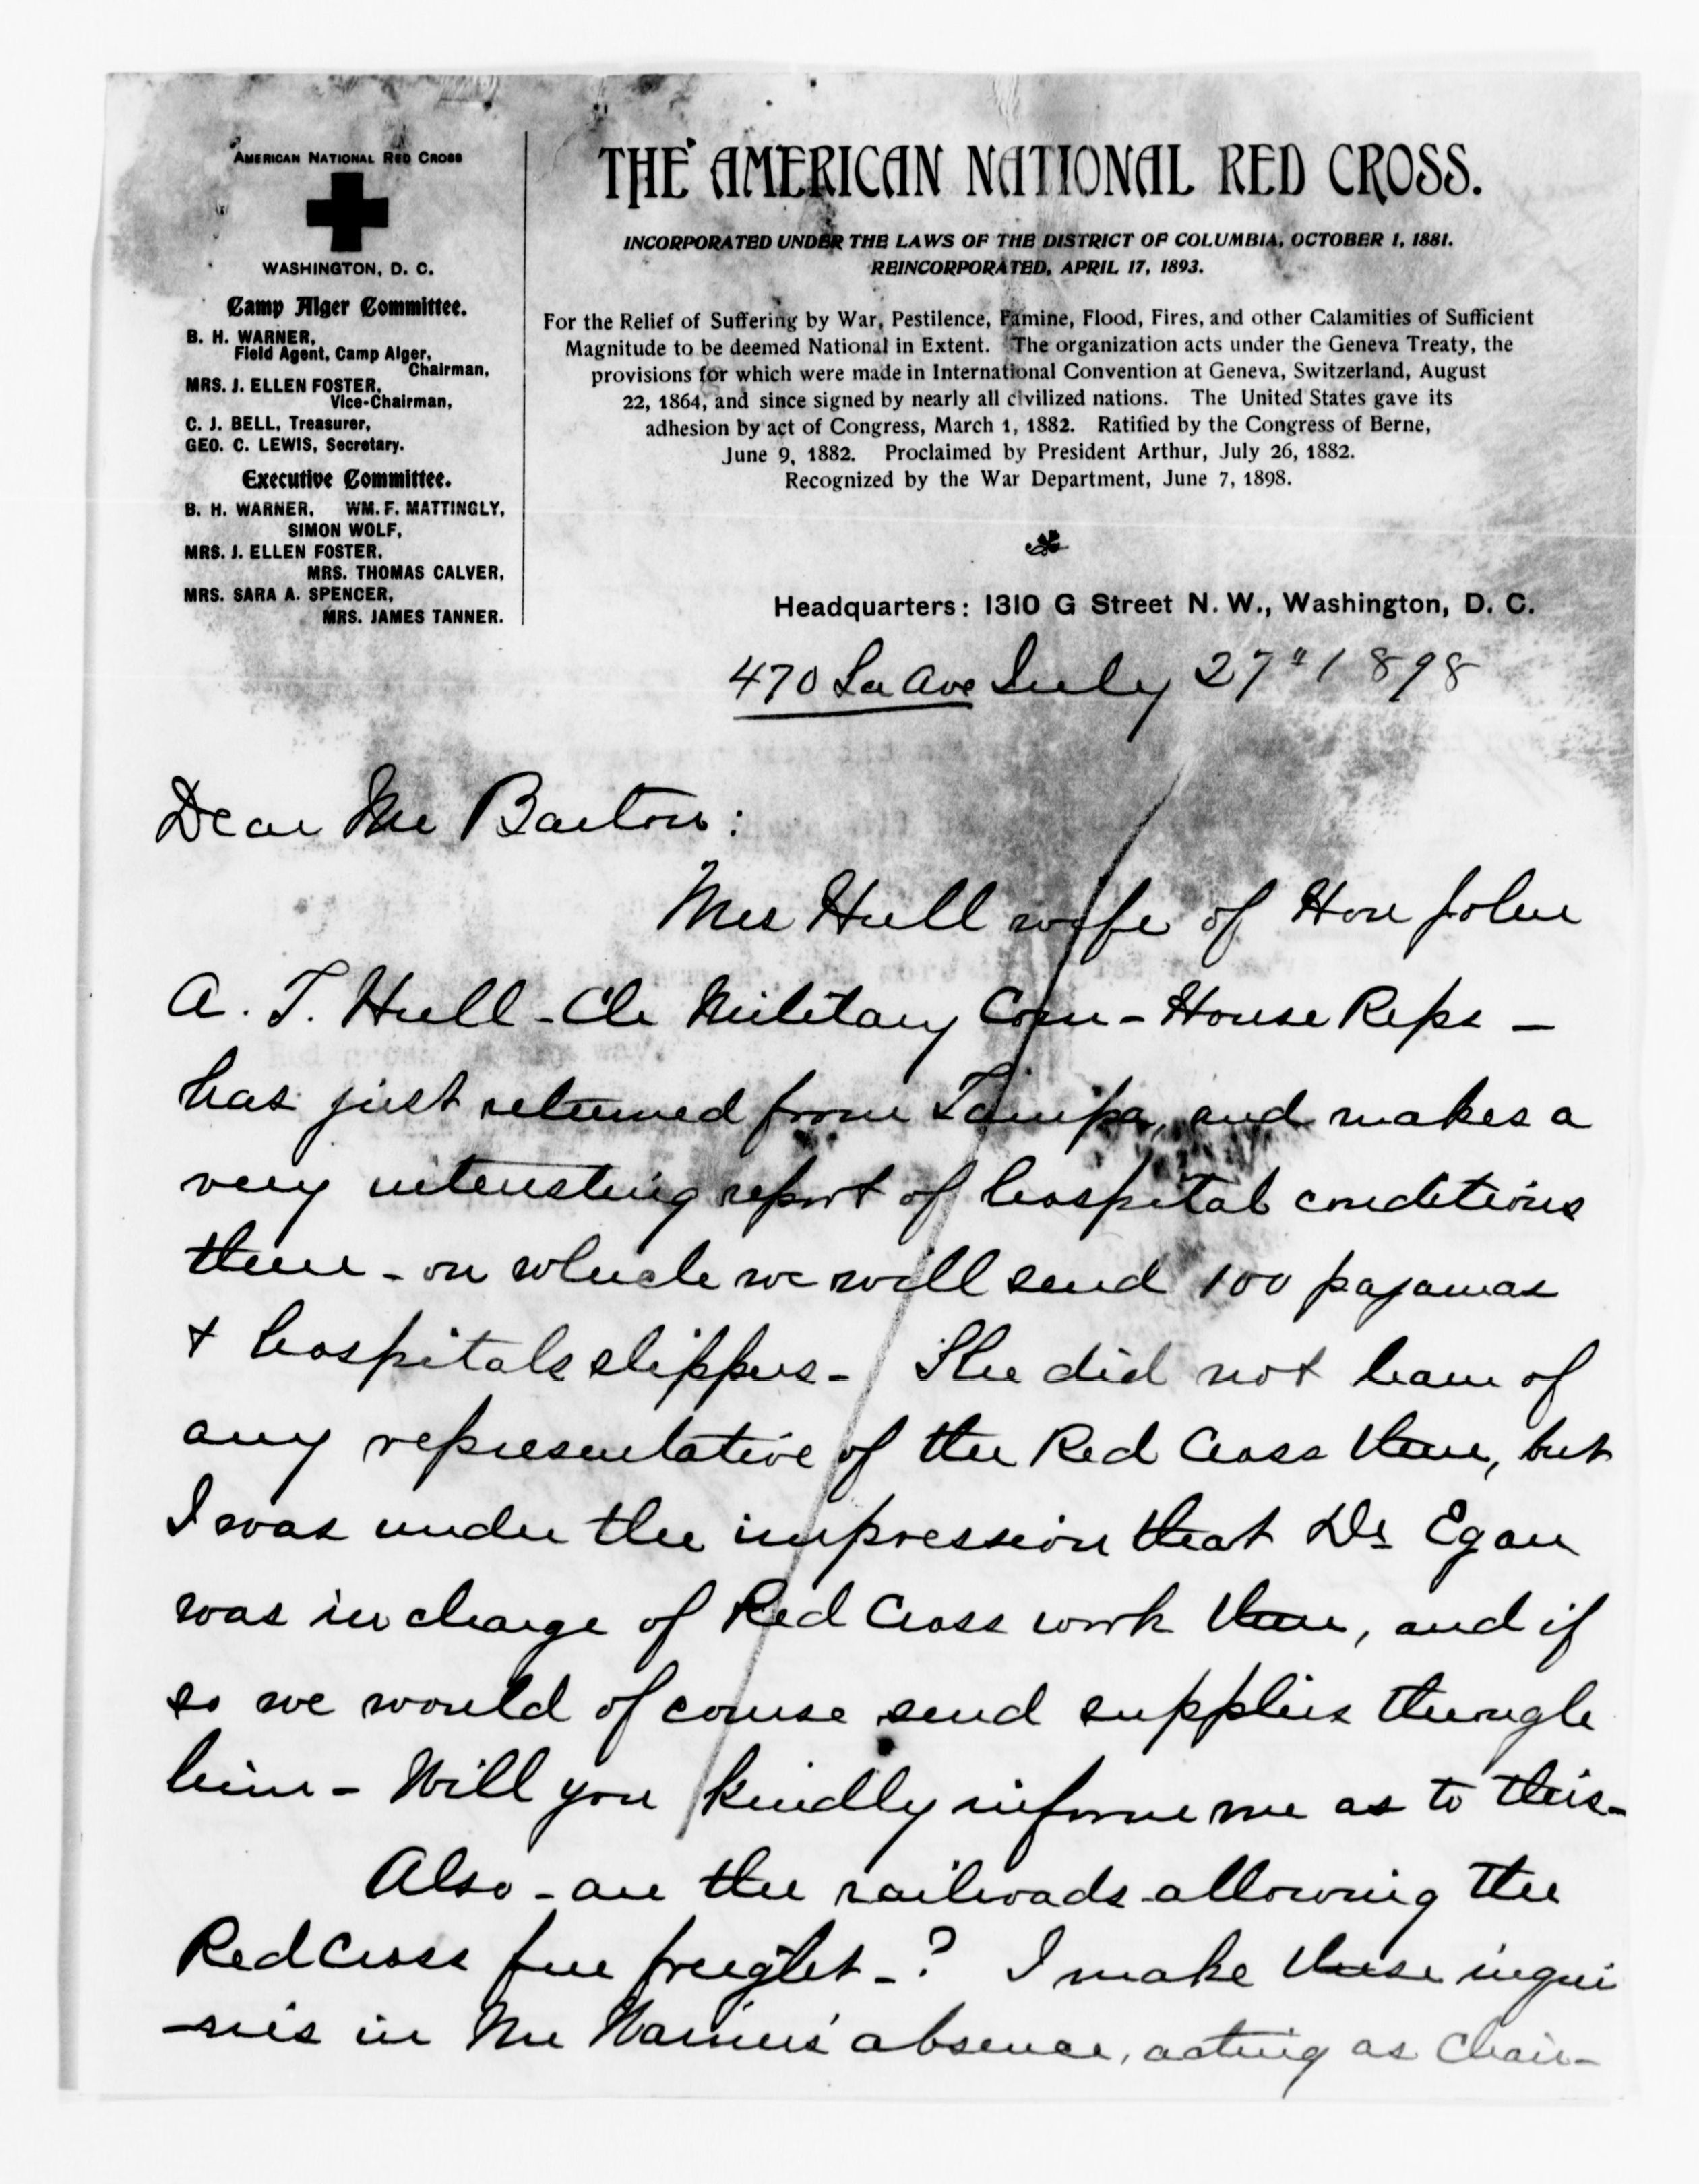 AMERICAN NATIONAL RED CROSS
WASHINGTON, D. C.
Camp Alger Committee.
B. H. WARNER,
Field Agent, Camp Alger,
Chairman,
MRS. J. ELLEN FOSTER,
Vice-Chairman,
C. J. BELL, Treasurer,
GEO. C. LEWIS, Secretary.
Executive Committee.
B. H. WARNER, WM. F. MATTINGLY,
SIMON WOLF,
MRS. J. ELLEN FOSTER,
MRS. THOMAS CALVER,
MRS. SARA A. SPENCER,
MRS. JAMES TANNER.
THE AMERICAN NATIONAL RED CROSS.
INCORPORATED UNDER THE LAWS OF THE DISTRICT OF COLUMBIA, OCTOBER 1, 1881.
REINCORPORATED, APRIL 17, 1893.
For the Relief of Suffering by War, Pestilence, Famine, Flood, Fires, and other Calamities of Sufficient
Magnitude to be deemed National in Extent. The organization acts under the Geneva Treaty, the
provisions for which were made in International Convention at Geneva, Switzerland, August
22, 1864, and since signed by nearly all civilized nations. The United States gave its
adhesion by act of Congress, March 1, 1882. Ratified by the Congress of Berne,
June 9, 1882. Proclaimed by President Arthur, July 26, 1882.
Recognized by the War Department, June 7, 1898.
Headquarters: 1310 G Street N. W., Washington, D. C.
470 La Ave July 27" 1898
Dear Mr Barton:
Mrs Hull wife of Hon John
A. T. Hull - Ch Military Com - House Reps -
has just returned from Tampa, and makes a
very interesting report of hospital conditions
there - on which we will send 100 pajamas
+ hospitals slippers - She did not learn of
any representative of the Red Cross there, but
I was under the impression that Dr Egan
was in charge of Red Cross work there, and if
so we would of course send supplies through
him - Will you kindly inform me as to this -
Also - are the railroads allowing the
Red Cross free freight - ? I make these inqui
-ries in Mr Warner's absence, acting as Chair-